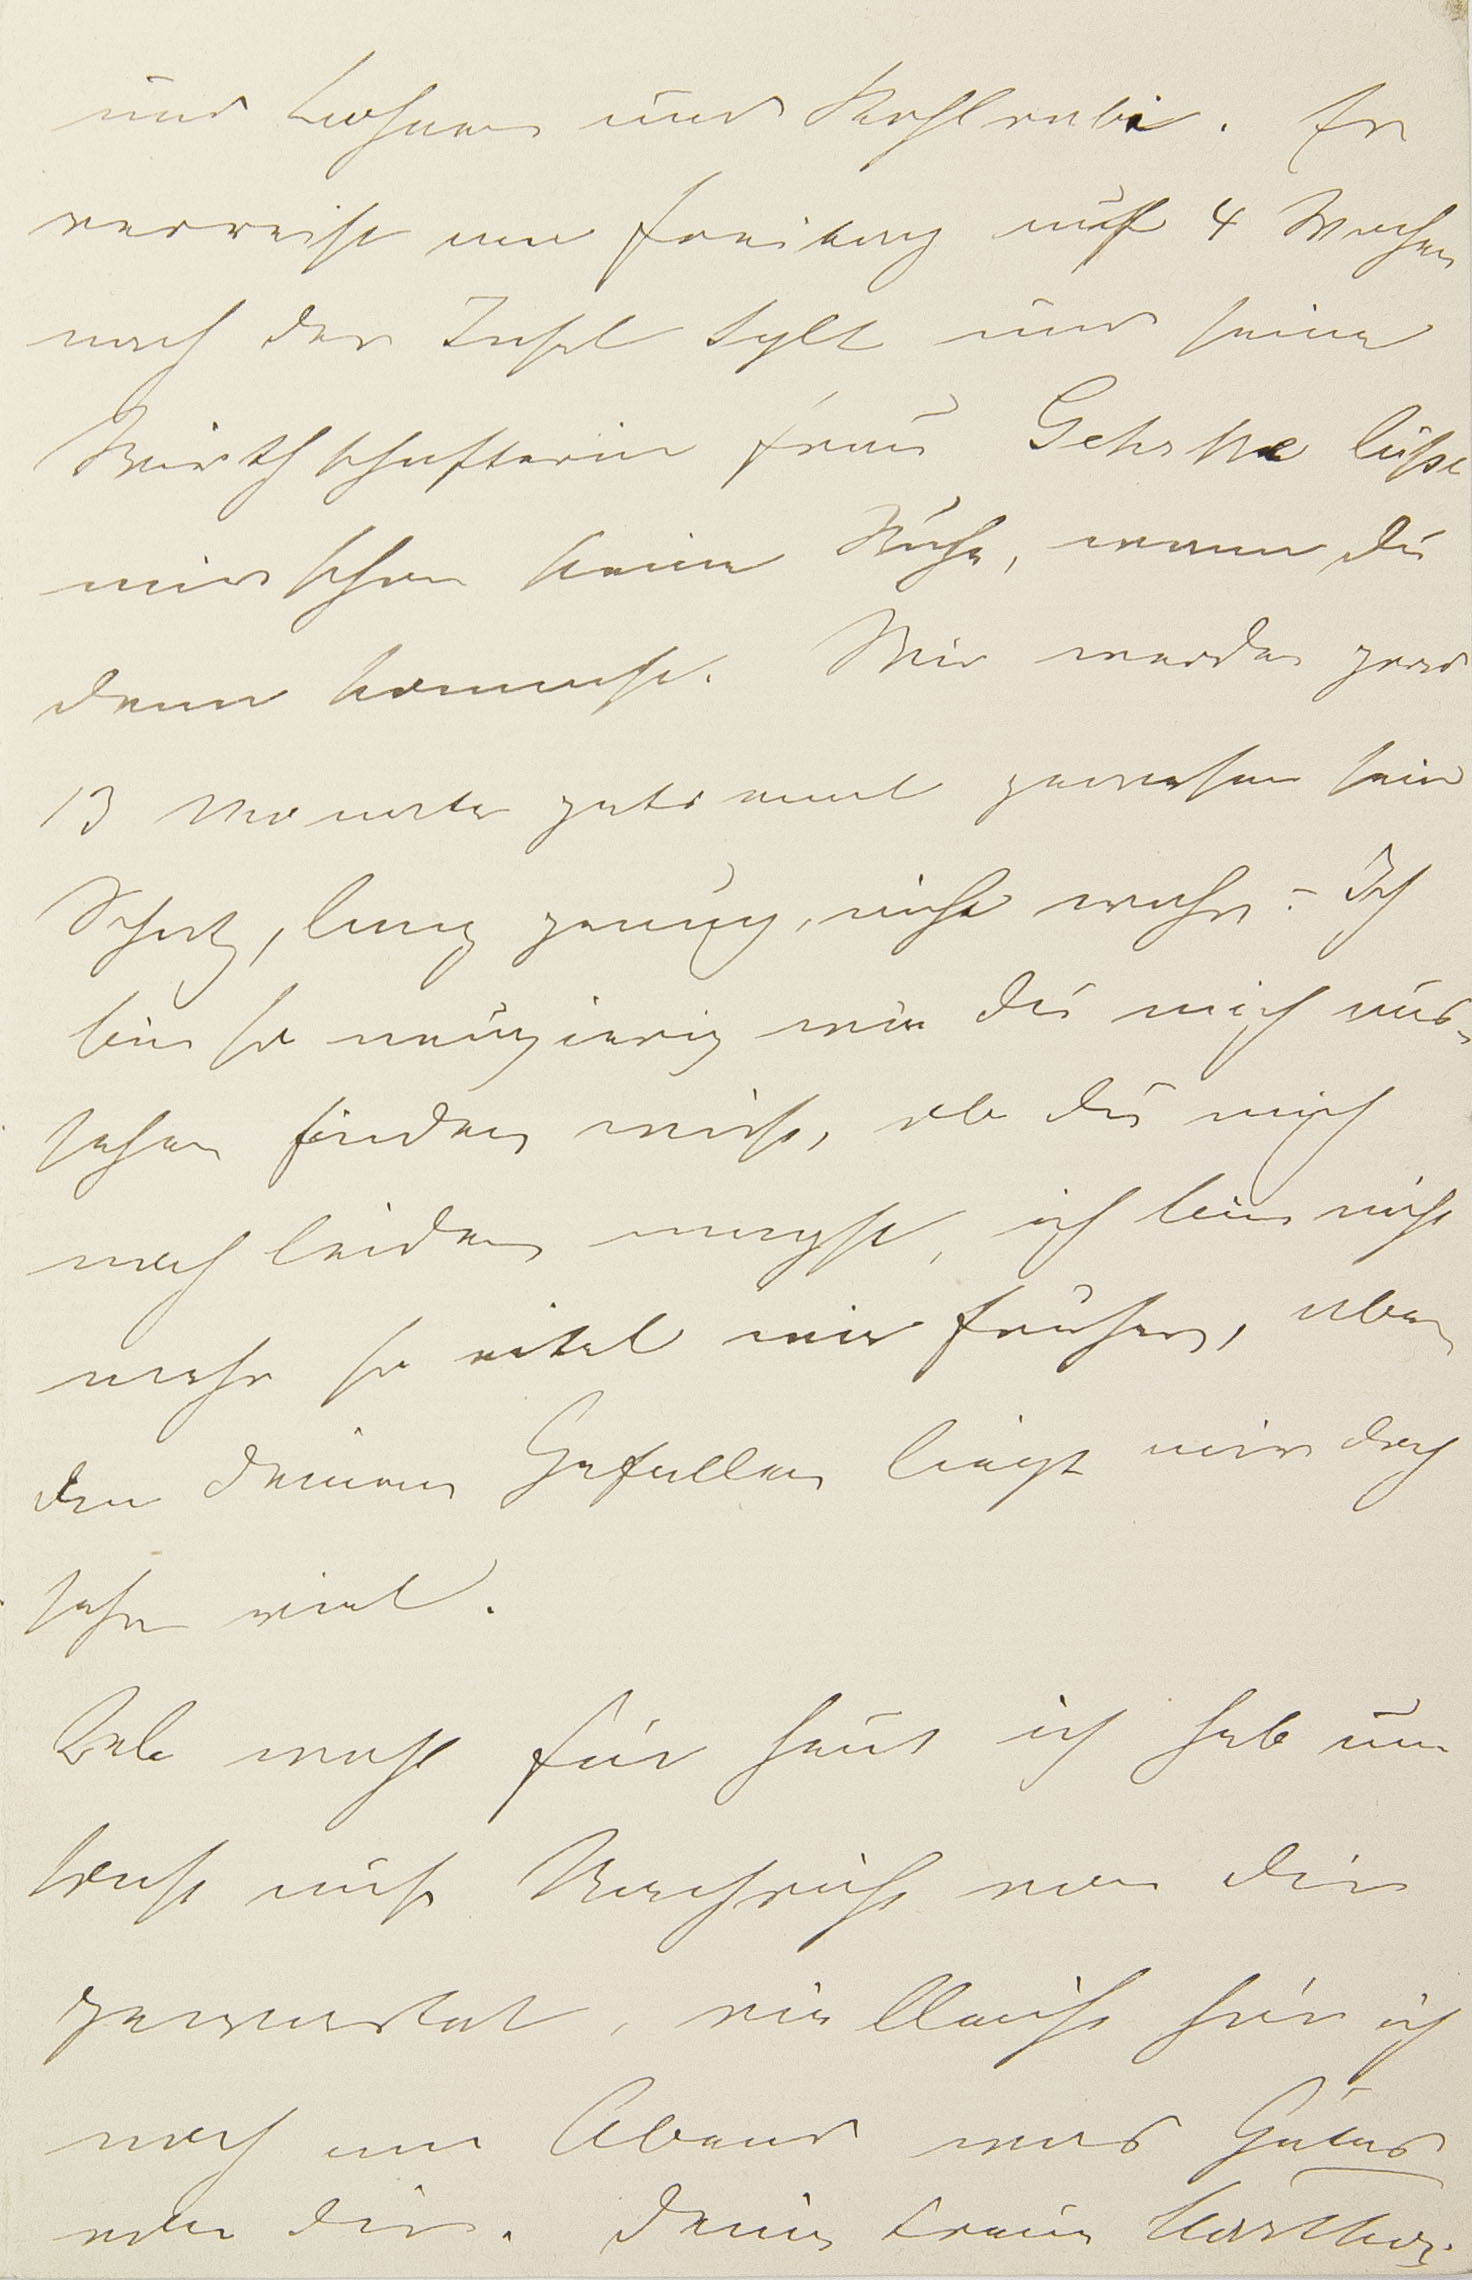 und Bohnen und Kohlrabi. Er
verreist am Freitag auf 4 Wochen
nach der Insel Sylt und seine
Wirthschafterin Frau Gehrke läßt
mir schon keine Ruhe, wann Du
denn kommst. Wir werden grad
13 Monate getrennt gewesen sein
Schatz, lang genug, nicht wahr? Ich
bin so neugierig wie Du mich aus-
sehen finden wirst, ob Du mich
noch leiden magst, ich bin nicht
mehr so eitel wie früher, aber
an Deinem Gefallen liegt mir doch
sehr viel.
Leb wohl für heut ich hab um
sonst auf Nachricht von Dir
gewartet, vielleicht hör ich
noch am Abend was Gutes
von Dir. Deine treue